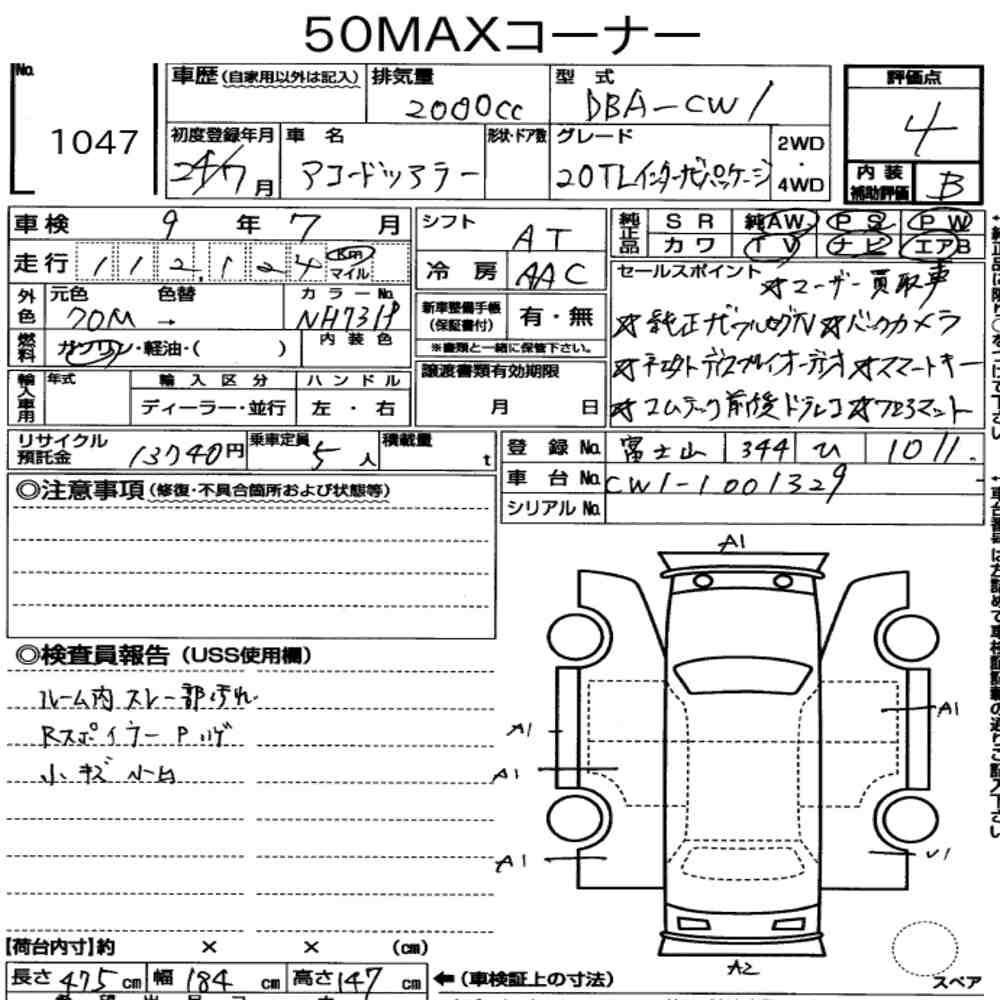 50MAXコーナー
No. 1047
車歴(自家用以外は記入) 排気量 2000cc 型式 DBA-CW1
評価点 4
初度登録年月 24/7月 車名 アコードツアラー 形状・ドア数 グレード 20TLインターナビパッケージ 2WD・4WD
内装補助評価 B
車検 9年7月
走行 112,124 Km マイル
シフト AT
冷房 AAC
純正品 SR 純AW PS PW
カワ TV ナビ エアB
外色 元色 70M → 色替 カラーNo. NH731P
燃料 ガソリン・軽油・( ) 内装色
新車整備手帳(保証書付) 有・無
※書類と一緒に保管下さい。
セールスポイント ☆ユーザー買取車
☆純正ナビフルセグN ☆バックカメラ
☆コネクトディスプレイオーディオ ☆スマートキー
☆コムテック前後ドラレコ ☆フロアマット
輸入車用 年式 輸入区分 ハンドル
ディーラー・並行 左・右
譲渡書類有効期限
月 日
リサイクル預託金 13740円 乗車定員 5人 積載量 t
登録No. 富士山 344 ひ 1011
車台No. CW1-1001329
シリアルNo.
◎注意事項(修復・不具合箇所および状態等)
◎検査員報告(USS使用欄)
ルーム内 スレ一部汚れ
Rスポイラー Pハゲ
小キズ ルーム
A1
A1
A1
A1
A1
U1
A2
スペア
【荷台内寸】約 × × (cm)
長さ 475 cm 幅 184 cm 高さ 147 cm ←(車検証上の寸法)